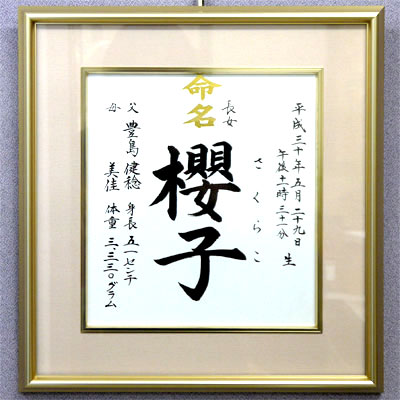 平成三十年五月二十九日
午後十一時三十一分
生
さくらこ
長女
命名
櫻子
父 豊島健稔
母 美佳
身長五一センチ
体重三、三三〇グラム